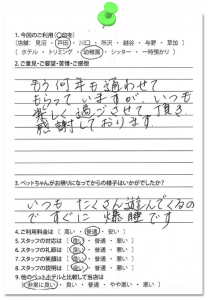 1.今回のご利用(○印を)
[店舗: 見沼 ・ 戸田 ・ 川口 ・ 所沢 ・ 越谷 ・ 与野 ・ 草加 ]
[ ホテル ・ トリミング ・ 幼稚園 ・ シッター ・ 一時預かり ]
2.ご意見・ご要望・苦情・ご感想
もう何年も通わせて
もらっていますがいつも
楽しく過ごさせて頂き
感謝しております。
3.ペットちゃんがお帰りになってからの様子はいかがでしたか?
いつもたくさん遊んでくるの
ですぐに爆睡です
4.ご利用料金は [ 高い ・ 普通 ・ 安い ]
5.スタッフの対応は [ 良い ・ 普通 ・ 悪い ]
6.スタッフの礼節は [ 良い ・ 普通 ・ 悪い ]
7.スタッフの笑顔は [ 良い ・ 普通 ・ 悪い ]
8.スタッフの説明は [ 良い ・ 普通 ・ 悪い ]
9.他のペットホテルと比較して当店は
[ 非常に良い ・ 良い ・ 普通 ・ やや悪い ・ 悪い ]